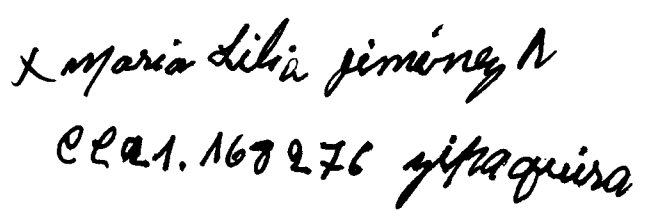 x Maria Lilia Jiménez R
CC 21.168276 Zipaquira